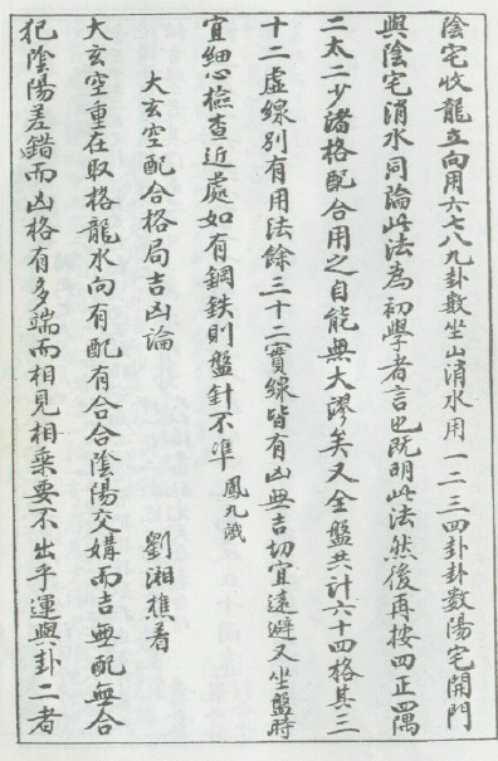 陰宅收龍立向用六七八九卦數坐山消水用一二三四卦卦數陽宅開門
與陰宅消水同論此法為初學者言也既明此法然後再按四正四隅
二太二少諸格配合用之自能無大謬矣又全盤共計六十四格其三
十二虛線別有用法餘三十二實線皆有凶無吉切宜遠避又坐盤時
宜細心檢查近處如有鋼鉄則盤針不準 鳳九識
大玄空配合格局吉凶論 劉湘樵着
大玄空重在取格龍水向有配有合合陰陽交媾而吉無配無合
犯陰陽差錯而凶格有多端而相見相乘要不出乎運與卦二者